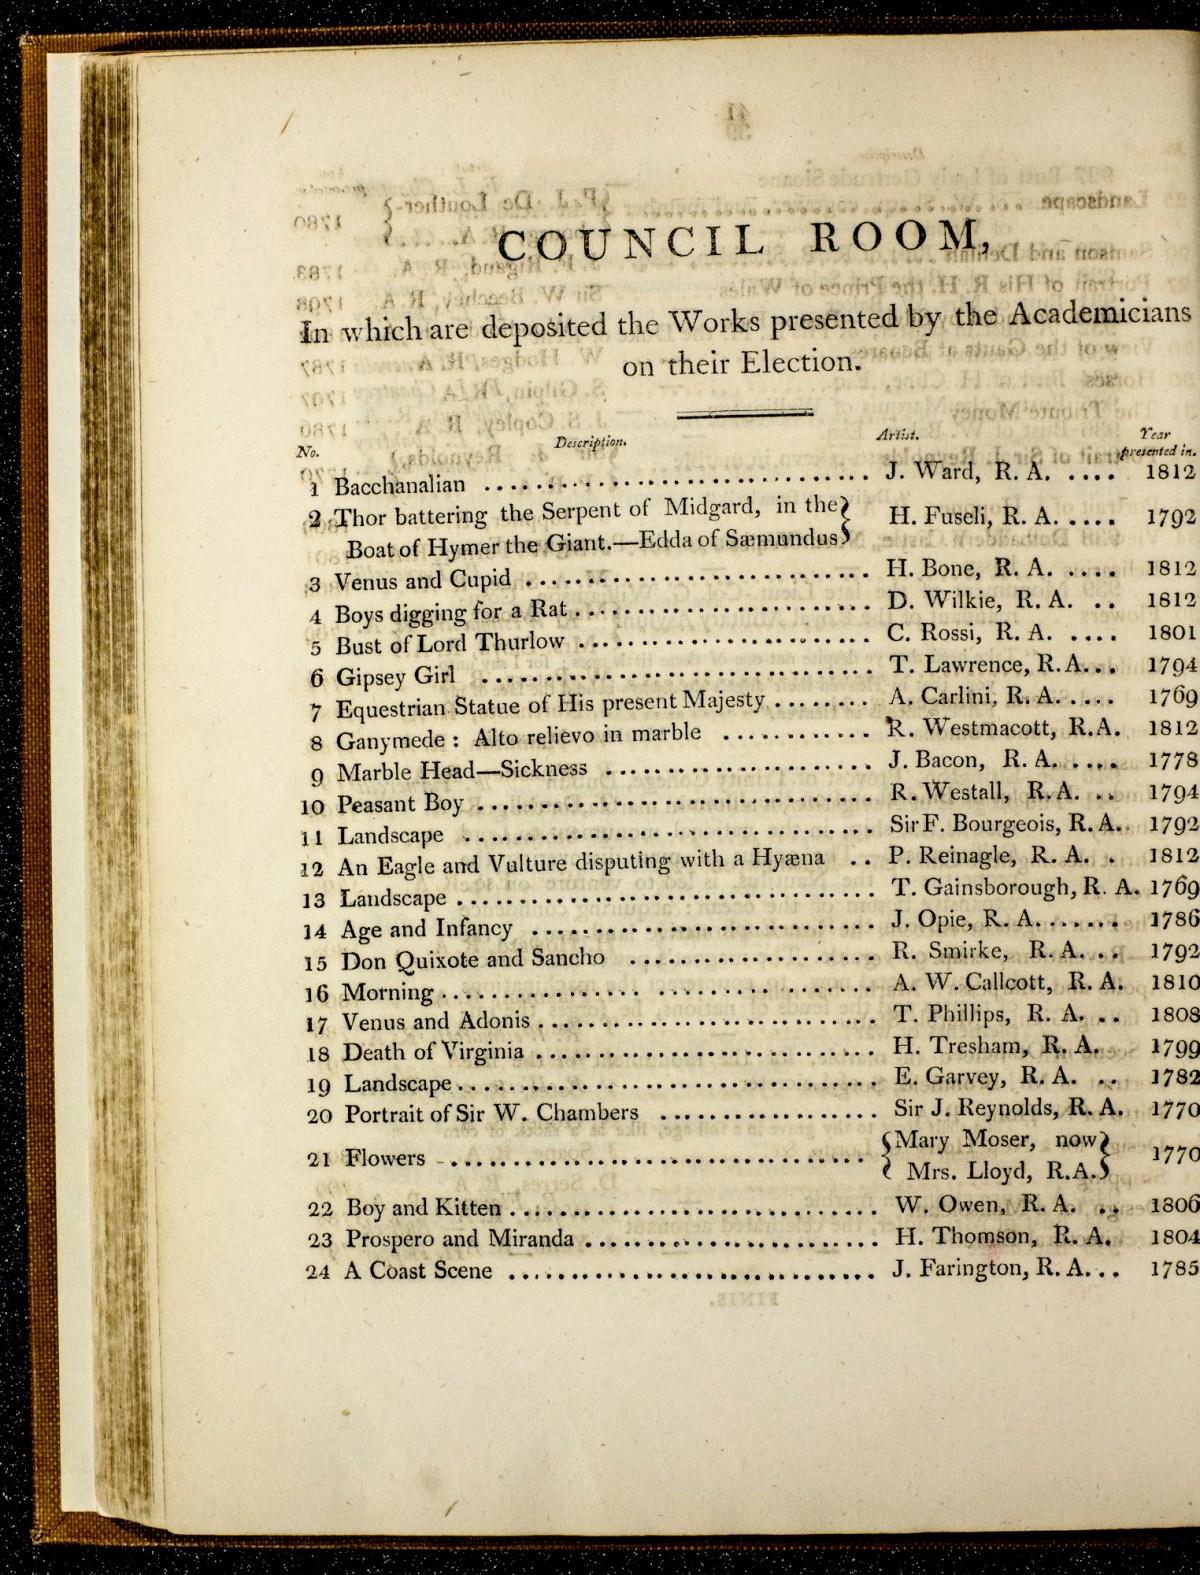 COUNCIL ROOM,
In which are deposited the Works presented by the Academicians
on their Election.
No. Description. Artist. Year presented in.
1 Bacchanalian .......... J. Ward, R. A. .... 1812
2 Thor battering the Serpent of Midgard, in the } H. Fuseli, R. A. .... 1792
Boat of Hymer the Giant.—Edda of Sæmundus }
3 Venus and Cupid .......... H. Bone, R. A. .... 1812
4 Boys digging for a Rat .......... D. Wilkie, R. A. .. 1812
5 Bust of Lord Thurlow .......... C. Rossi, R. A. .... 1801
6 Gipsey Girl .......... T. Lawrence, R. A... 1794
7 Equestrian Statue of His present Majesty ........ A. Carlini, R. A. .... 1769
8 Ganymede : Alto relievo in marble .......... R. Westmacott, R. A. 1812
9 Marble Head—Sickness .......... J. Bacon, R. A. .... 1778
10 Peasant Boy .......... R. Westall, R. A. .. 1794
11 Landscape .......... Sir F. Bourgeois, R. A. 1792
12 An Eagle and Vulture disputing with a Hyæna .. P. Reinagle, R. A. . 1812
13 Landscape .......... T. Gainsborough, R. A. 1769
14 Age and Infancy .......... J. Opie, R. A....... 1786
15 Don Quixote and Sancho .......... R. Smirke, R. A. .. 1792
16 Morning .......... A. W. Callcott, R. A. 1810
17 Venus and Adonis .......... T. Phillips, R. A. .. 1808
18 Death of Virginia .......... H. Tresham, R. A. 1799
19 Landscape .......... E. Garvey, R. A. .. 1782
20 Portrait of Sir W. Chambers .......... Sir J. Reynolds, R. A. 1770
21 Flowers .......... { Mary Moser, now } 1770
{ Mrs. Lloyd, R. A. }
22 Boy and Kitten .......... W. Owen, R. A. .. 1806
23 Prospero and Miranda .......... H. Thomson, R. A. 1804
24 A Coast Scene .......... J. Farington, R. A... 1785